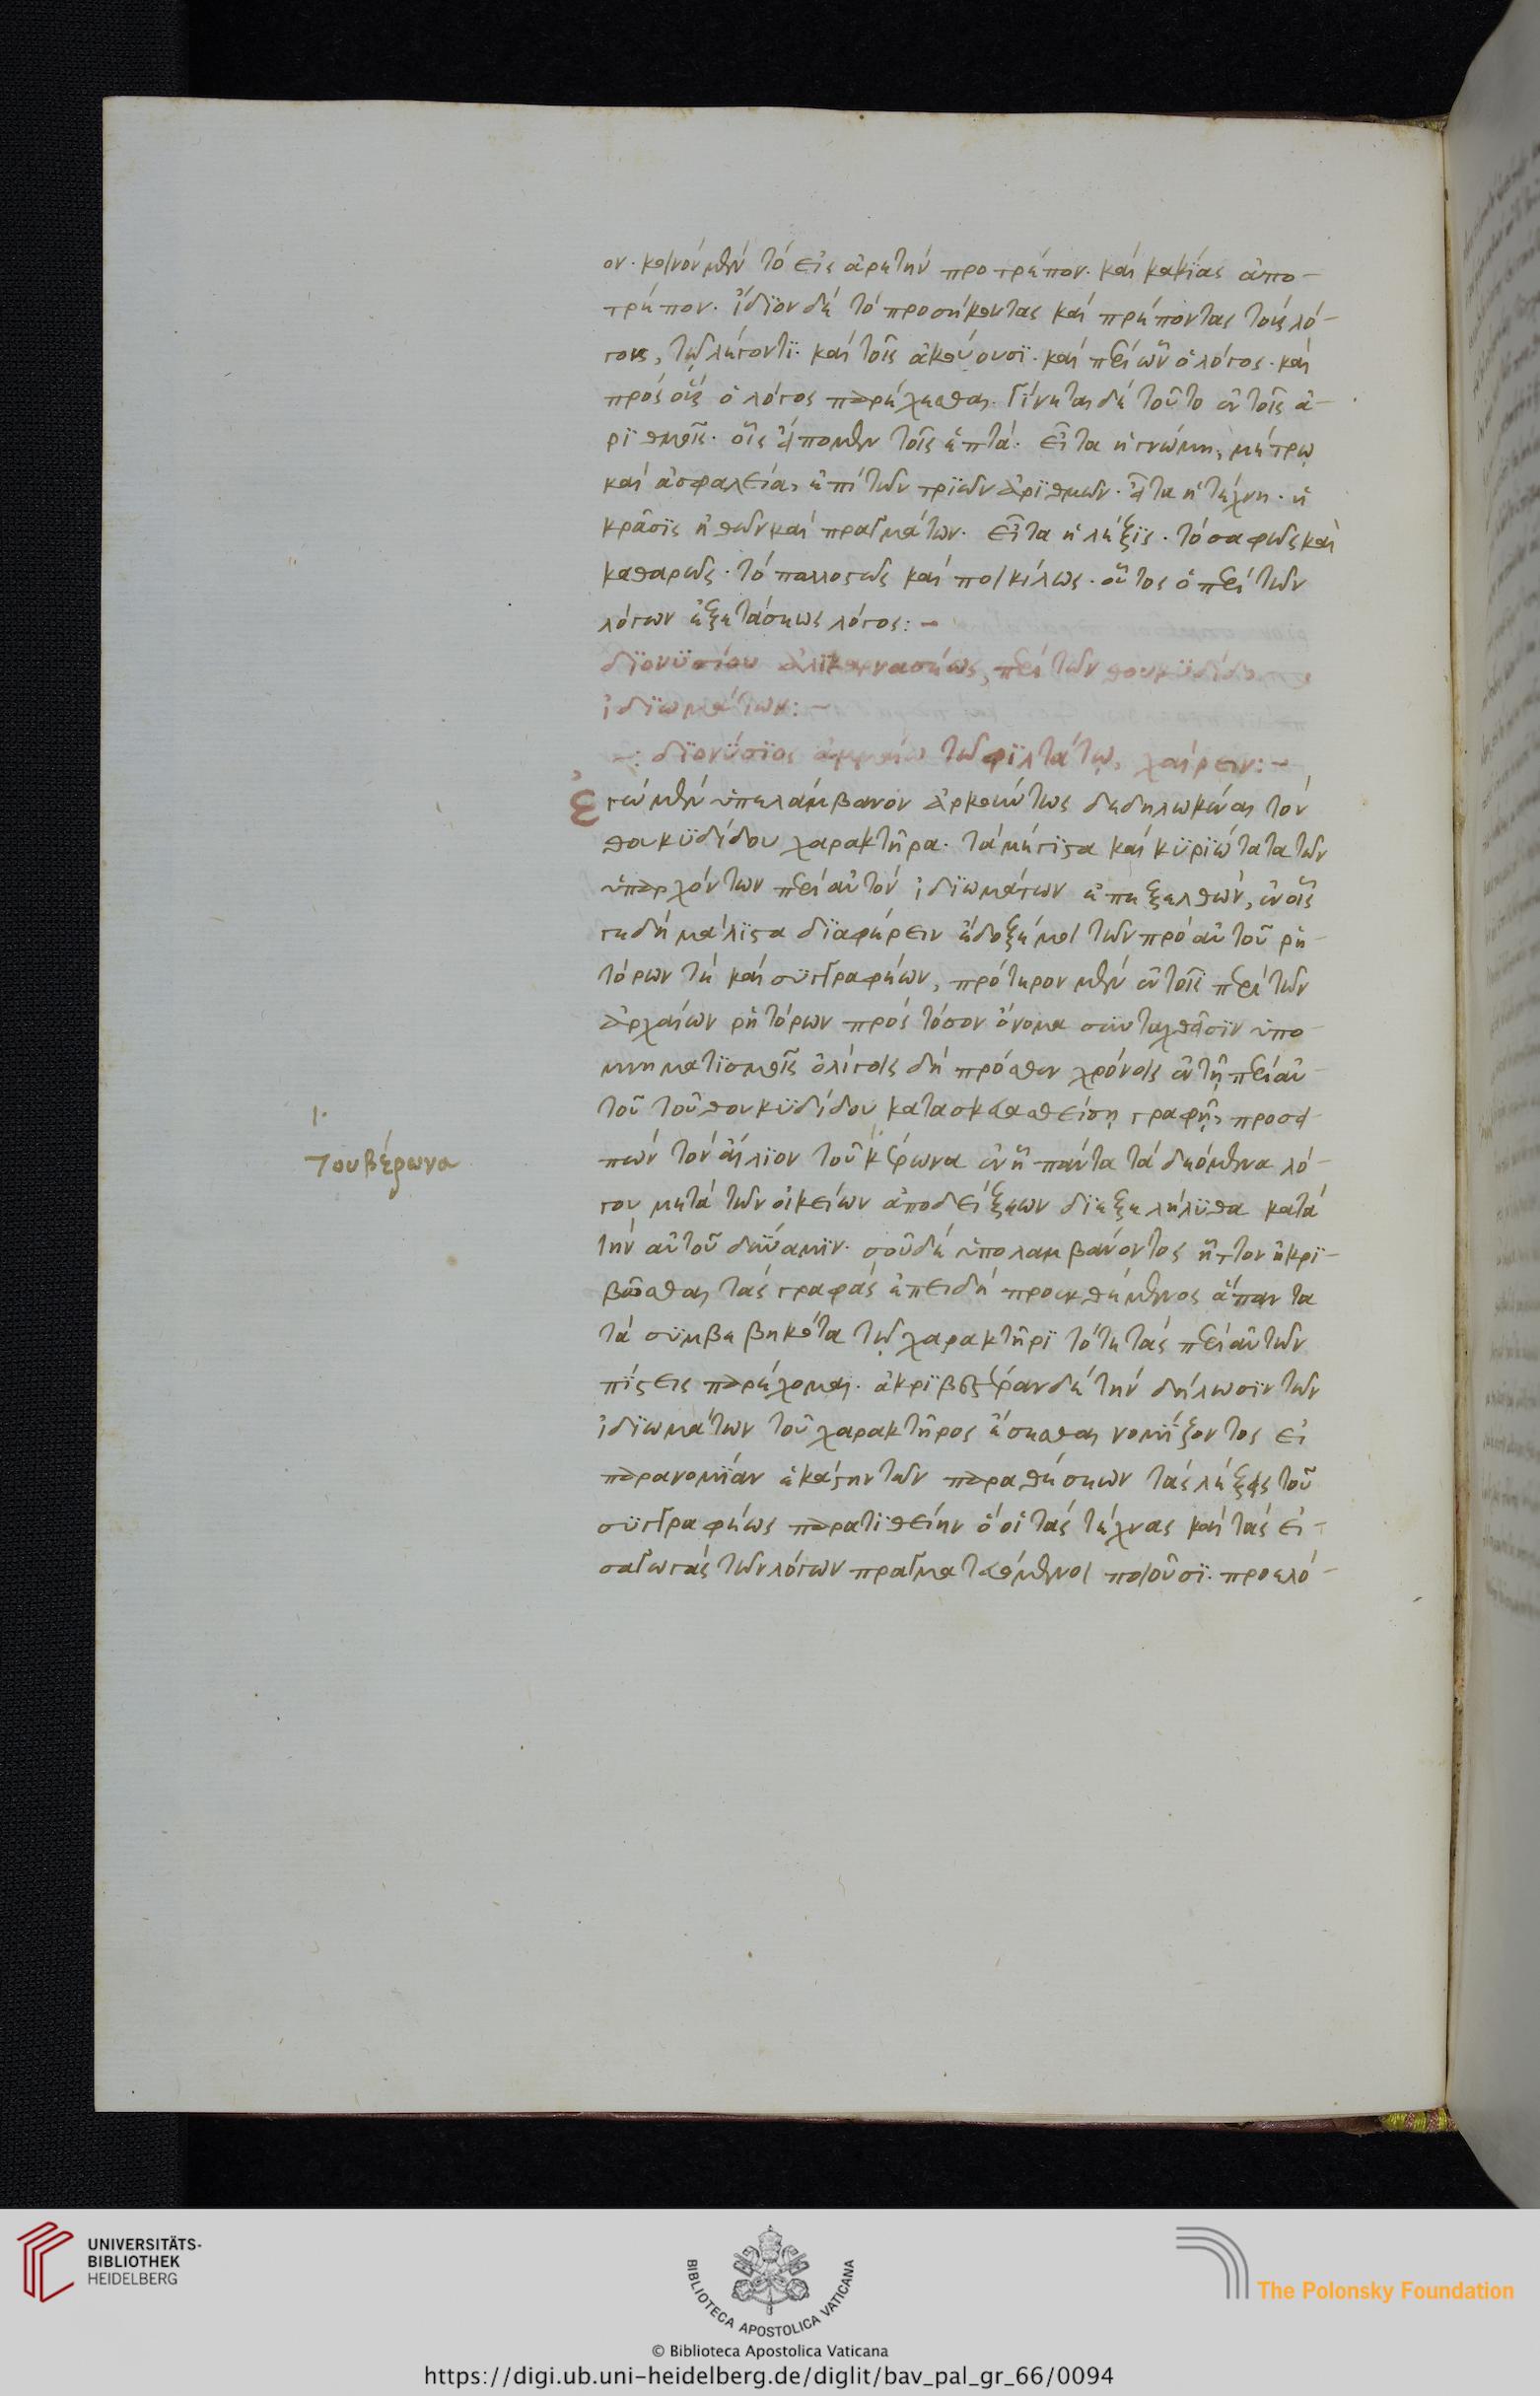 ον. κοινὸν μὲν τὸ εἰς ἀρετὴν προτρέπον. καὶ κακίας ἀπο-
τρέπον. ἴδϊον δὲ τὸ προσήκοντας καὶ πρέποντας τοὺς λό-
γους, τῷ λέγοντϊ. καὶ τοῖς ἀκούουσϊ. καὶ περὶ ὧν ὁ λόγος. καὶ
πρὸς οὓς ὁ λόγος παρέχεσθαι. Γίνεται δὲ τοῦτο ἐν τοῖς ἀ-
ρϊθμοῖς. οἷς εἴπομεν τοῖς ἑπτά. εἶτα ἡ γνώμη, μέτρῳ
καὶ ἀσφαλεία, ἐπὶ τῶν τρϊῶν ἀρϊθμῶν. εἶτα ἡ τέχνη. ἡ
κρᾶσϊς ἠθῶν καὶ πραγμάτων. εἶτα ἡ λέξϊς. τὸ σαφῶς καὶ
καθαρῶς. τὸ παλλοςῶς καὶ ποικίλως. οὗτος ὁ περὶ τῶν
λόγων ἐξετάσεως λόγος: -
δϊονϋσίου ἁλϊκαρνασέως, περὶ τῶν θουκϋδίδου
ἰδϊωμάτων: -
-: δϊονΰσϊος ἀμμαίω τῶ φϊλτάτῳ, χαίρειν: -
Ἐγὼ μὲν ὑπελάμβανον ἀρκούντως δεδηλωκέναι τὸν
θουκϋδίδου χαρακτῆρα. τὰ μέγϊςα καὶ κϋρϊώτατα τῶν
ὑπαρχόντων περὶ αὐτὸν ἰδϊωμάτων ἐπεξελθών, ἐν οἷς
γε δὴ μάλϊςα δϊαφέρειν ἔδοξέ μοι τῶν πρὸ αὐτοῦ ῥη-
τόρων τὲ καὶ σϋγγραφέων, πρότερον μὲν ἐν τοῖς περὶ τῶν
ἀρχαίων ῥητόρων πρὸς τόσον ὄνομα συνταχθεῖσϊν ὑπο-
μνηματϊσμοῖς ὀλίγοις δὴ πρόσθεν χρόνοις ἐν τῆ περὶ αὐ-
τοῦ τοῦ θουκϋδίδου κατασκευασθείση γραφῆ, προσει-
πὼν τὸν αἴλϊον τουκέρωνα ἐν ἧ πάντα τὰ δεόμενα λό-
γου μετὰ τῶν οἰκείων ἀποδείξεων δϊεξελήλϋθα κατὰ
τὴν αὐτοῦ δΰναμϊν. σοῦ δὲ ὑπολαμβάνοντος ἧττον ἠκρϊ-
βῶσθαι τὰς γραφὰς ἐπειδὴ προεκθέμενος ἅπαντα
τὰ σϋμβεβηκότα τῷ χαρακτῆρϊ τότε τὰς περὶ αὐτῶν
πίςεις παρέχομαι. ἀκρϊβεςέραν δὲ τὴν δήλωσϊν τῶν
ἰδϊωμάτων τοῦ χαρακτῆρος ἔσεσθαι νομΐζοντος εἰ
παρανομΐαν ἑκάςην τῶν παραθέσεων τὰς λέξεις τοῦ
σϋγγραφέως παρατϊθείην ὃ οἱ τὰς τέχνας καὶ τὰς εἰ-
σαγωγὰς τῶν λόγων πραγματευόμενοι ποιοῦσϊ. προελό-
τουβέρωνα
UNIVERSITÄTS-
BIBLIOTHEK
HEIDELBERG
BIBLIOTECA APOSTOLICA VATICANA
The Polonsky Foundation
© Biblioteca Apostolica Vaticana
https://digi.ub.uni-heidelberg.de/diglit/bav_pal_gr_66/0094